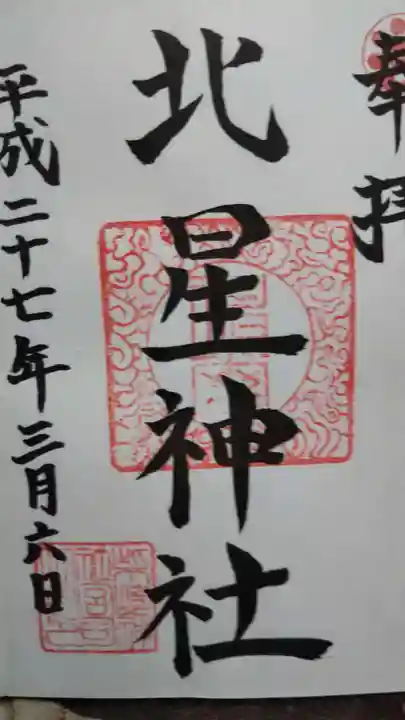 奉拝
北星神社
平成二十七年三月六日